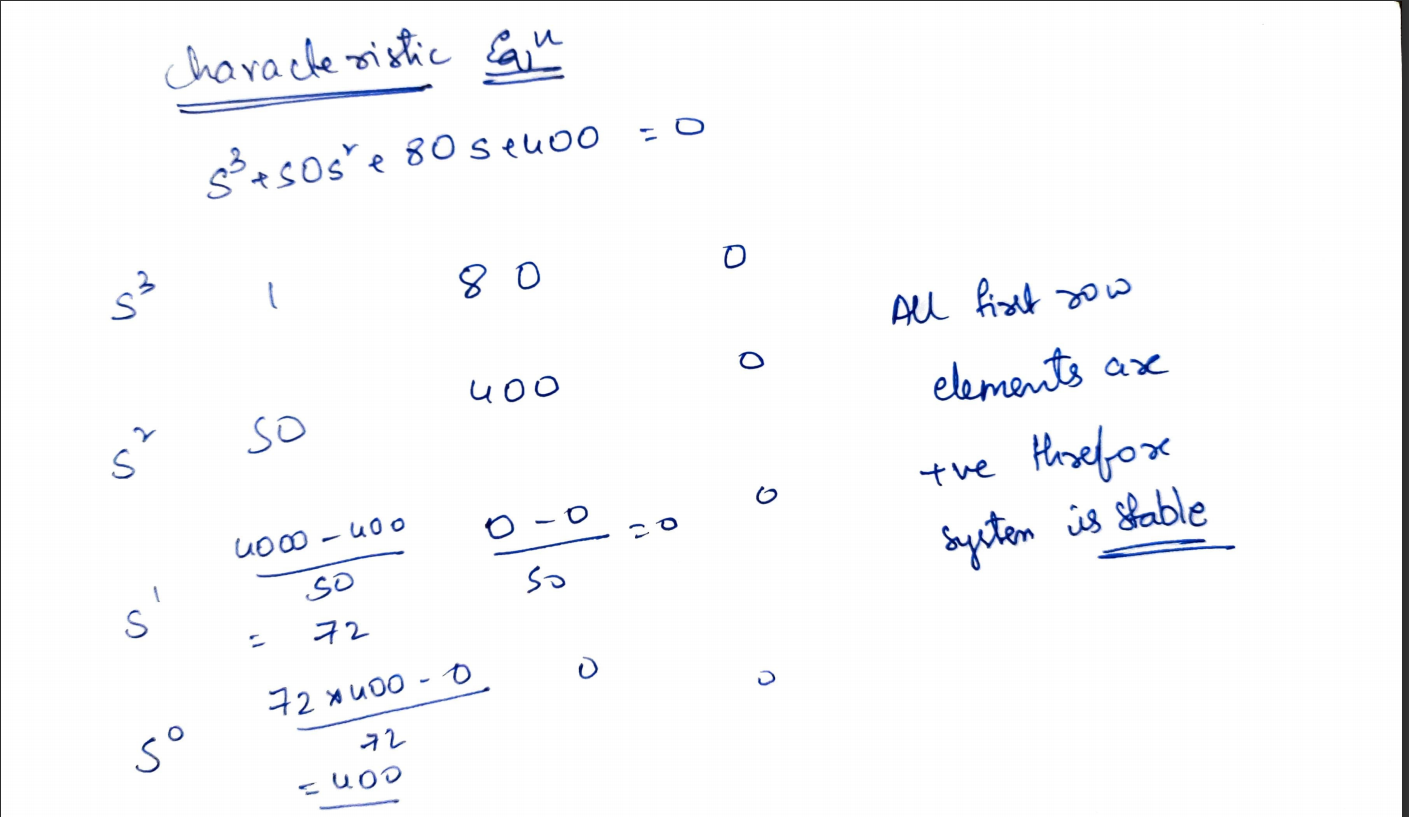 Characteristic Eqⁿ
s³+50s²+80s+400 = 0
s³ 1 80 0
s² 50 400 0
s¹ 4000-400/50 = 72 0-0/50 = 0 0
s⁰ 72×400-0/72 = 400 0 0
All first row
elements are
+ve threfore
system is stable